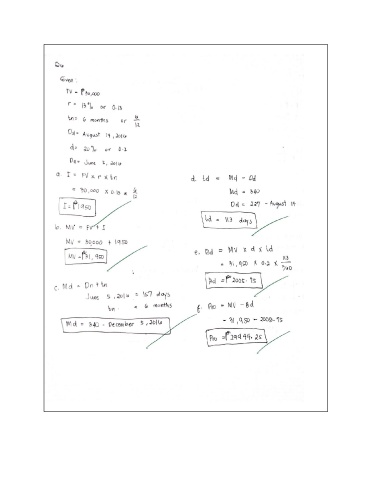 Given:
FV = ₱30,000
r = 13% or 0.13
tn = 6 months or 6/12
Dd = August 14, 2016
d = 20% or 0.2
Dn = June 5, 2016
a. I = FV x r x tn
= 30,000 x 0.13 x 6/12
I = ₱1950
b. MV = FV + I
MV = 30,000 + 1950
MV = ₱31,950
c. Md = Dn + tn
June 5, 2016 = 157 days
tn = 6 months
Md = 340 - December 5, 2016
d. Ld = Md - Dd
Md = 340
Dd = 227 - August 14
Ld = 113 days
e. Bd = MV x d x Ld
= 31,950 x 0.2 x 113/360
Bd = ₱2005.75
f. Pro = MV - Bd
= 31,950 - 2005.75
Pro = ₱29944.25